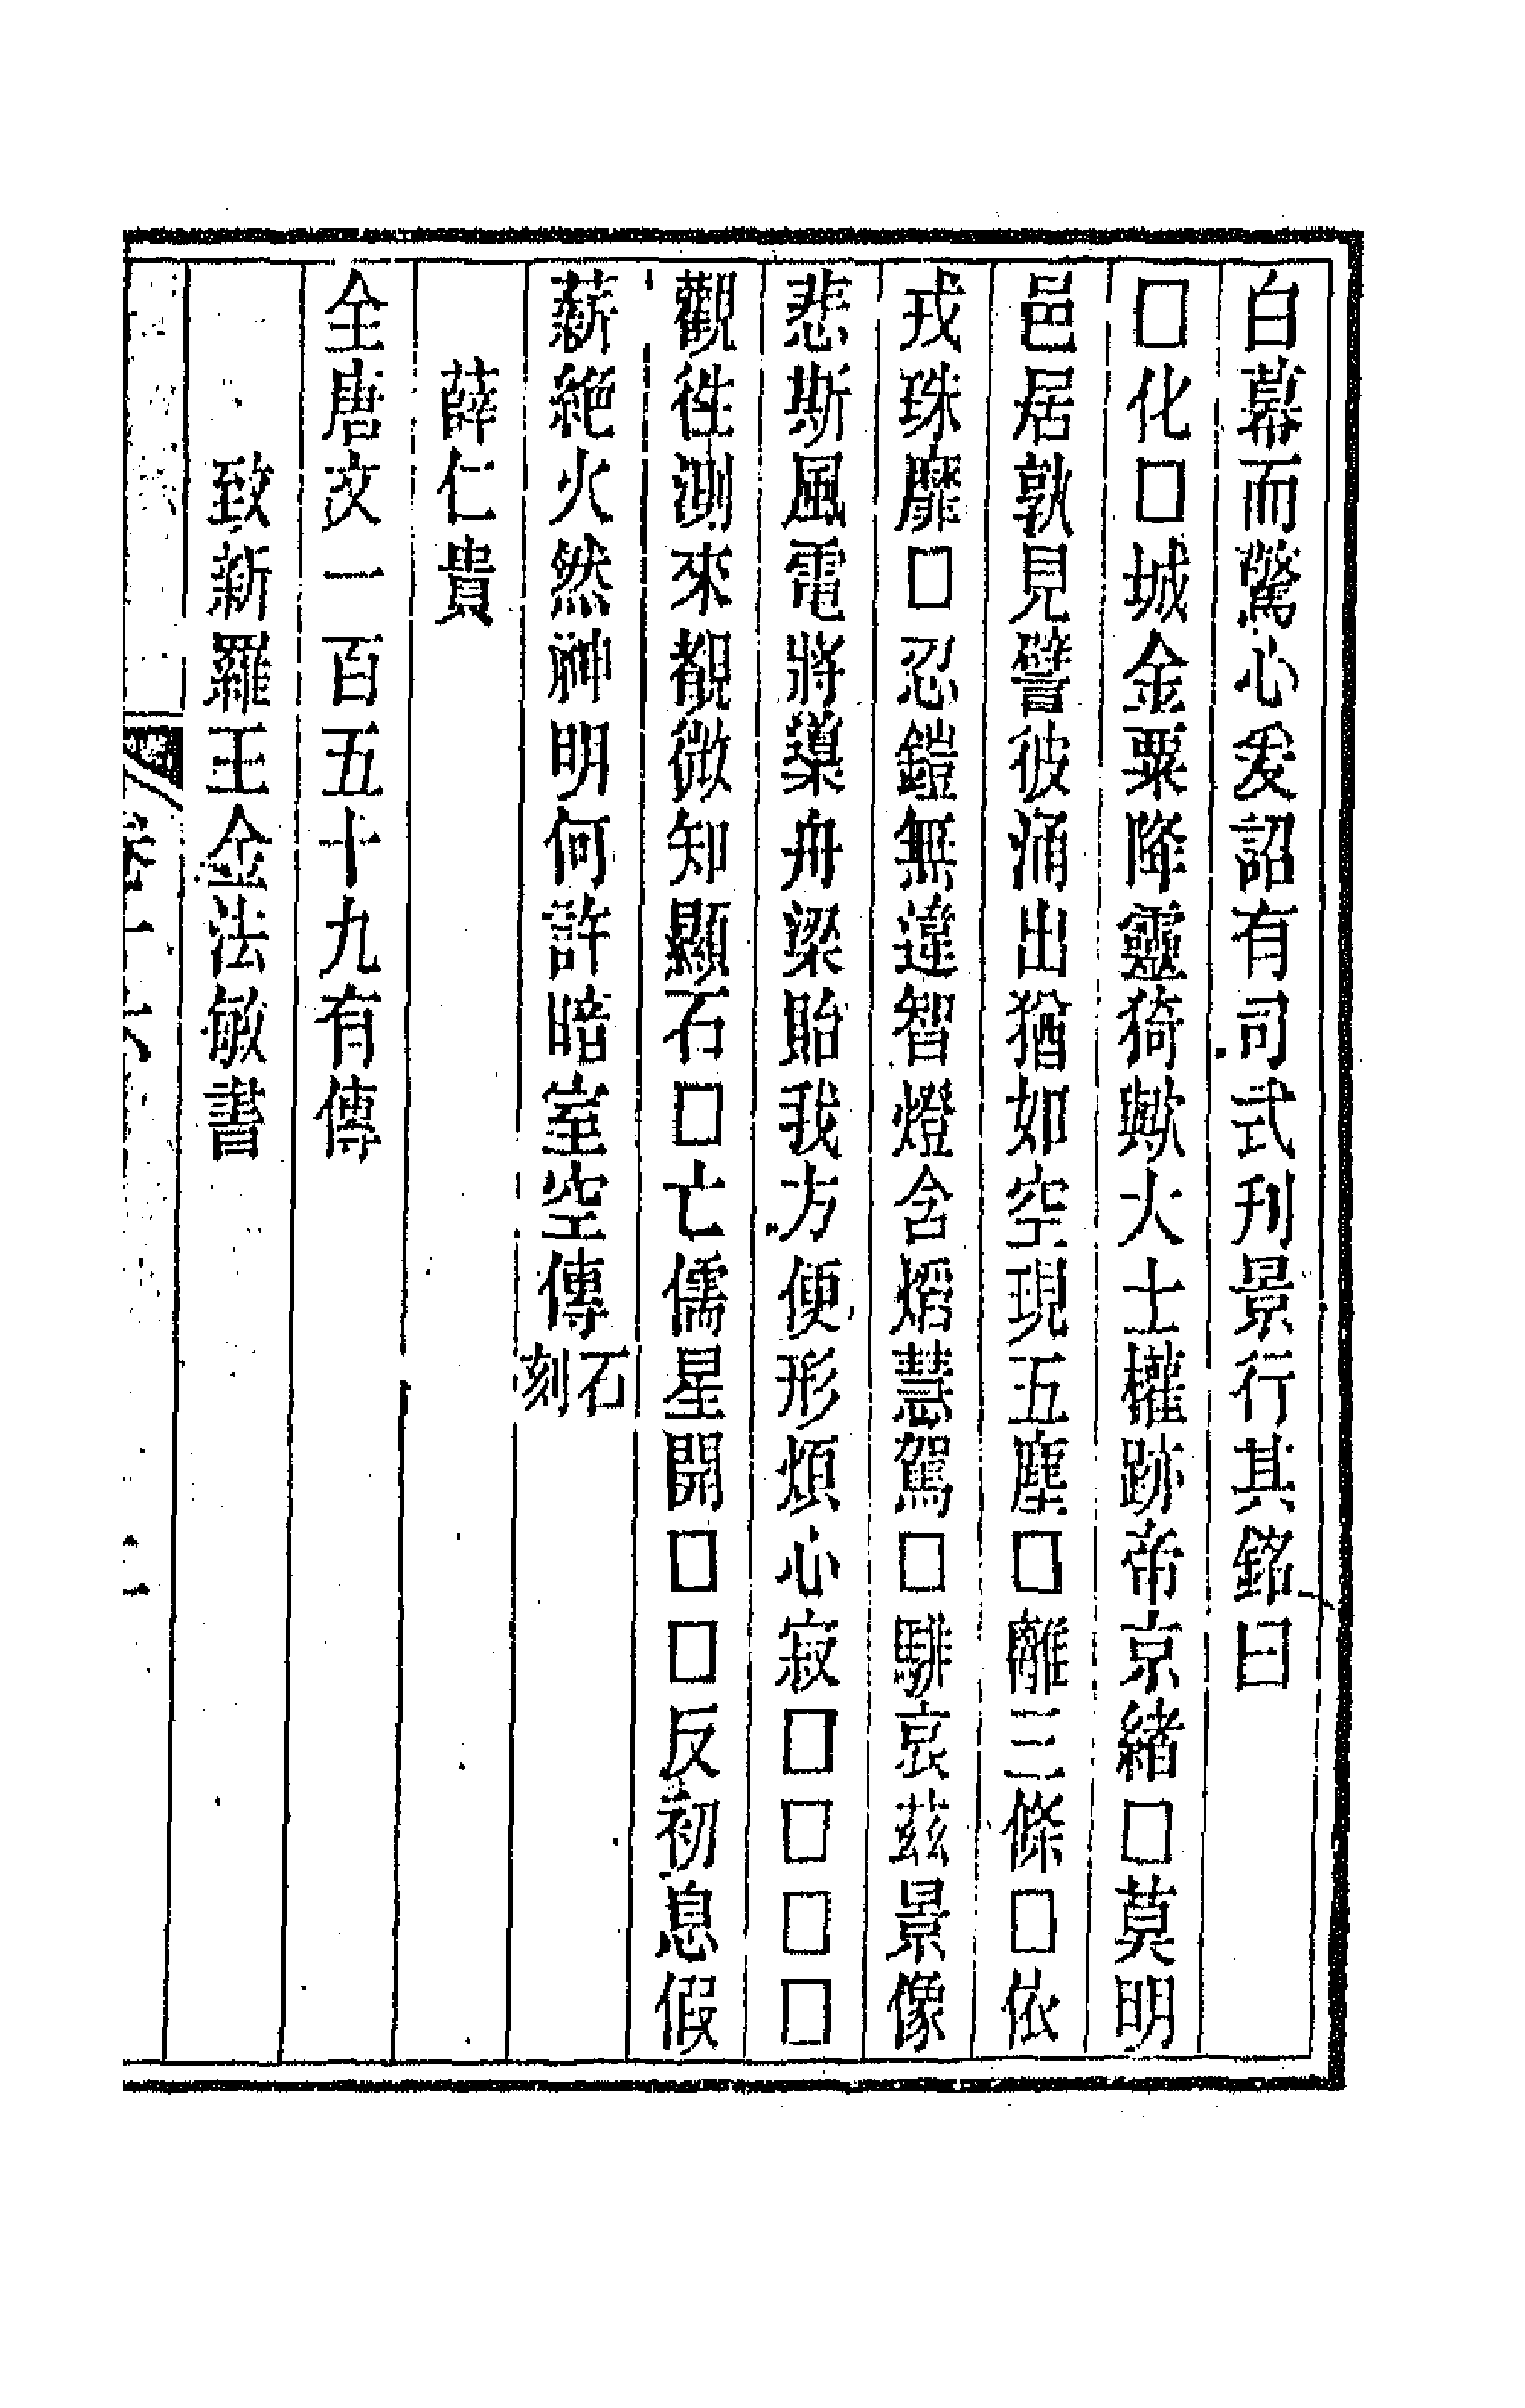 白幕而驚心爰詔有司式刋景行其銘曰
□化□城金粟降靈猗歟大士權跡帝京緒□莫明
邑居敦見譬彼涌出猶如空現五塵□離三條□依
戎珠靡□忍鎧無違智燈含熖慧駕□騑哀茲景像
悲斯風電將蕖舟梁貽我方便形煩心寂□□□□
觀徃測來覩微知顯石□亡儒星開□□反初息假
薪絶火然神明何許暗室空傳石刻
薛仁貴
全唐文一百五十九有傳
致新羅王金法敏書